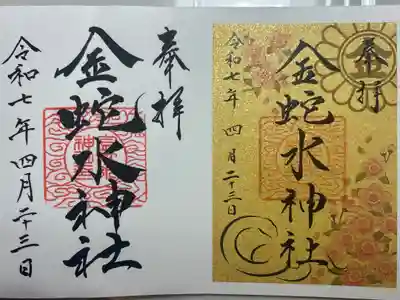 奉拝
金蛇水神社
令和七年四月二十三日
奉拝
金蛇水神社
令和七年四月二十三日